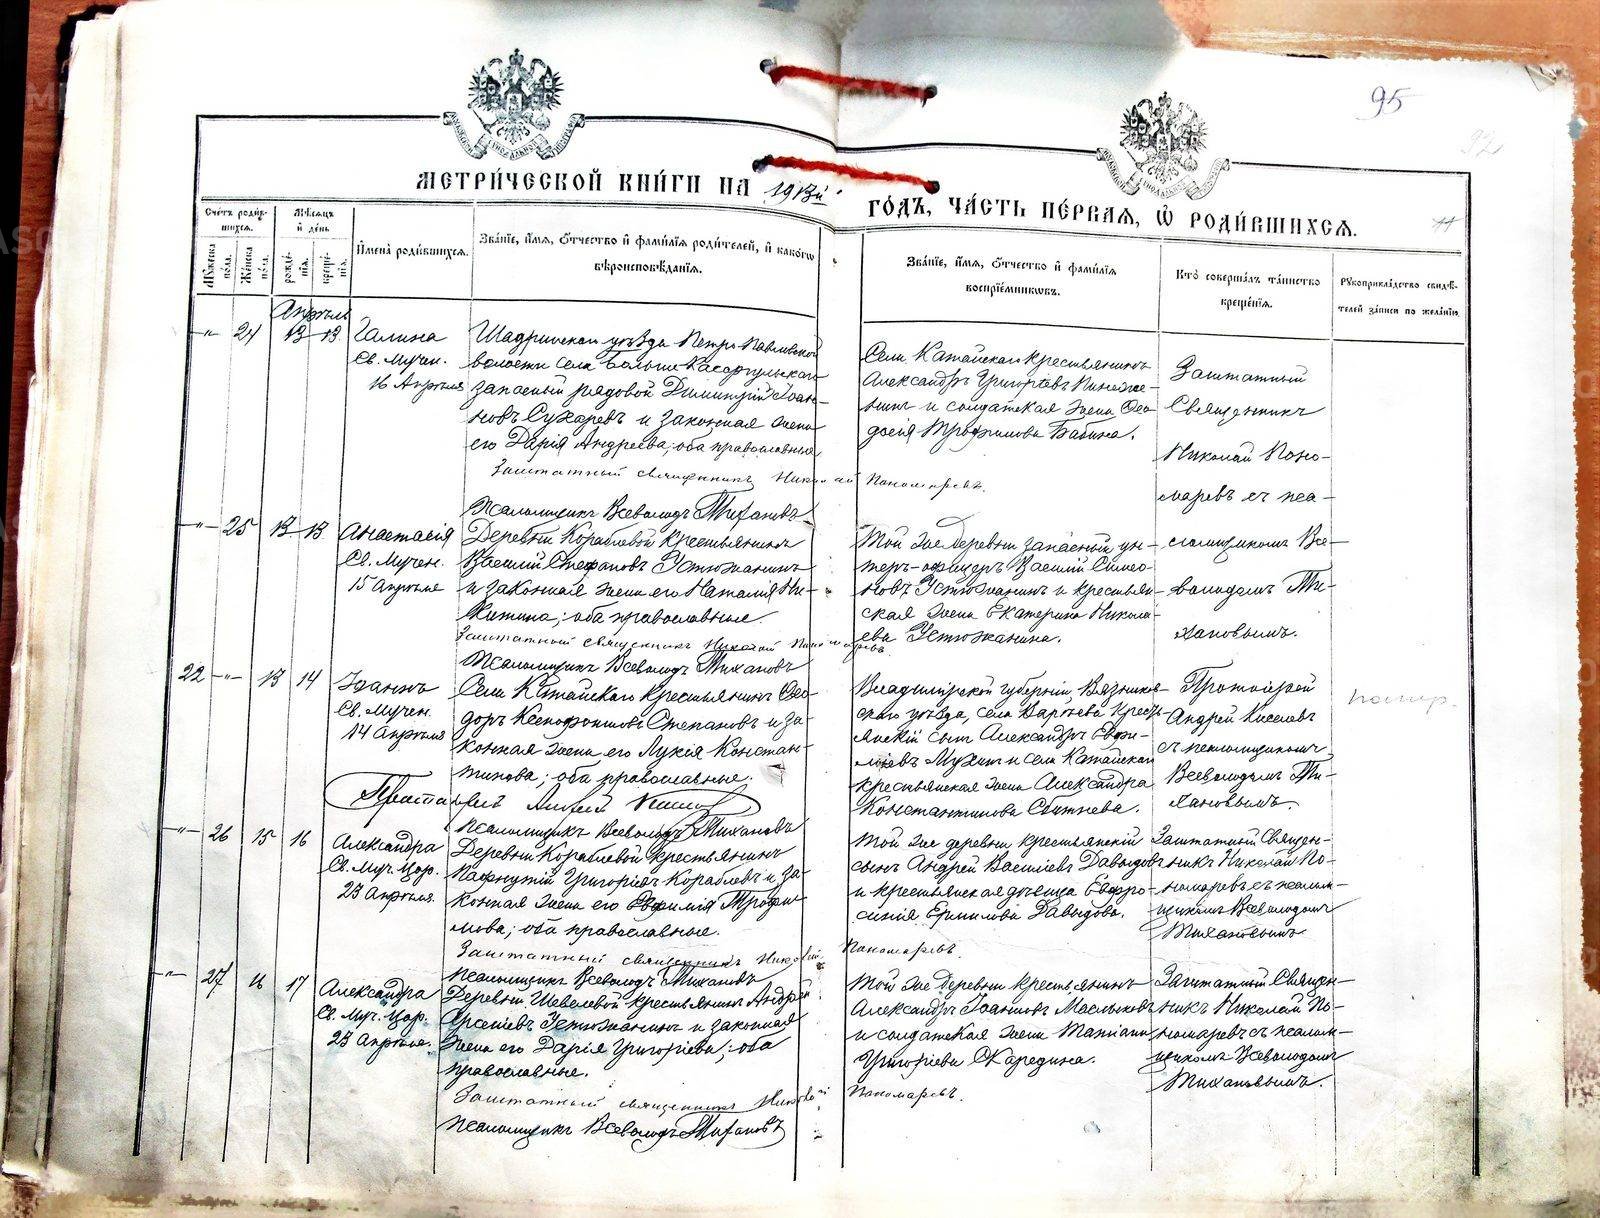 95
МЕТРИ́ЧЕСКОЙ КНИ́ГИ НА 1913й
ГО́ДЪ, ЧА́СТЬ ПЕ́РВАЯ, Ѡ РОДИ́ВШИХСЯ.
Сче́тъ роди́в-
шихся.
Му́жеска по́ла.
Же́нска по́ла.
Мѣ́сяцъ
и де́нь
рожде́-
нія.
креще́-
нія.
Имена̀ роди́вшихся.
Зва́ніе, и́мя, о́тчество и фами́лія роди́телей, и како́гѡ
вѣроисповѣ́данія.
Зва́ніе, и́мя, о́тчество и фами́лія
воспріе́мниковъ.
Кто̀ соверша́лъ та́инство
креще́нія.
Рукоприкла́дство свидѣ́-
телей за́писи по жела́нію
Апрѣль
-"- 24 13 13
Галина
Св. мучен.
16 Апрѣля
Шадринскаго уѣзда Петро-Павловской
волости села Больше-Касаргульскаго
запасный рядовой Димитрій Іоан-
новъ Сухаревъ и законная жена
его Дарія Андреева; оба православные
Заштатный священникъ Николай Пономаревъ.
Псаломщикъ Всеволодъ Тихановъ
Села Катайскаго крестьянинъ
Александръ Григорьевъ
и солдатская жена Ѳео-
досія Трофимова Бабина.
Заштатный
Священникъ
Николай Поно-
маревъ съ пса-
ломщикомъ Все-
володомъ Ти-
хановымъ.
-"- 25 13 13
Анастасія
Св. Мучен.
15 Апрѣля
Деревни Кораблевой крестьянинъ
Василій Стефановъ Устюжанинъ
и законная жена его Наталія Ни-
китина; оба православные.
Заштатный священникъ Николай Пономаревъ
Псаломщикъ Всеволодъ Тихановъ
Той же деревни запасный ун-
теръ-офицеръ Василій Симео-
новъ Устюжанинъ и крестьян-
ская жена Екатерина Никола-
ева Устюжанина.
22 -"- 13 14
Іоаннъ
Св. Мучен.
14 Апрѣля
Села Катайскаго крестьянинъ Ѳео-
доръ Ксенофонтовъ Степановъ и за-
конная жена его Лукія Констан-
тинова; оба православные.
Протоіерей Андрей Киселевъ
Псаломщикъ Всеволодъ Тихановъ
Владимірской губерніи, Вязников-
скаго уѣзда, села крест-
янскій сынъ Александръ
Мухинъ и села Катайскаго
крестьянская жена Александра
Константинова
Протоіерей
Андрей Киселевъ
съ псаломщикомъ
Всеволодомъ Ти-
хановымъ.
-"- 26 15 16
Александра
Св. Муч. Цар.
23 Апрѣля.
Деревни Кораблевой крестьянинъ
Пафнутій Григоріевъ Кораблевъ и за-
конная жена его Евфимія Трофи-
мова; оба православные.
Заштатный священникъ Николай Пономаревъ.
Псаломщикъ Всеволодъ Тихановъ
Той же деревни крестьянскій
сынъ Андрей Василіевъ Давыдовъ
и крестьянская дѣвица Евфро-
синія Ермилова Давыдова.
Заштатный Священ-
никъ Николай По-
номаревъ съ псалом-
щикомъ Всеволодомъ
Тихановымъ
-"- 27 16 17
Александра
Св. Муч. Цар.
23 Апрѣля.
Деревни Шевелевой крестьянинъ Андрей
Арсеніевъ Устюжанинъ и законная
жена его Дарія Григоріева; оба
православные.
Заштатный священникъ Николай Пономаревъ.
Псаломщикъ Всеволодъ Тихановъ
Той же деревни крестьянинъ
Александръ Іоанновъ Масленковъ
и солдатская жена Татіана
Григоріева Скаредина.
Заштатный Священ-
никъ Николай По-
номаревъ съ псалом-
щикомъ Всеволодомъ
Тихановымъ.